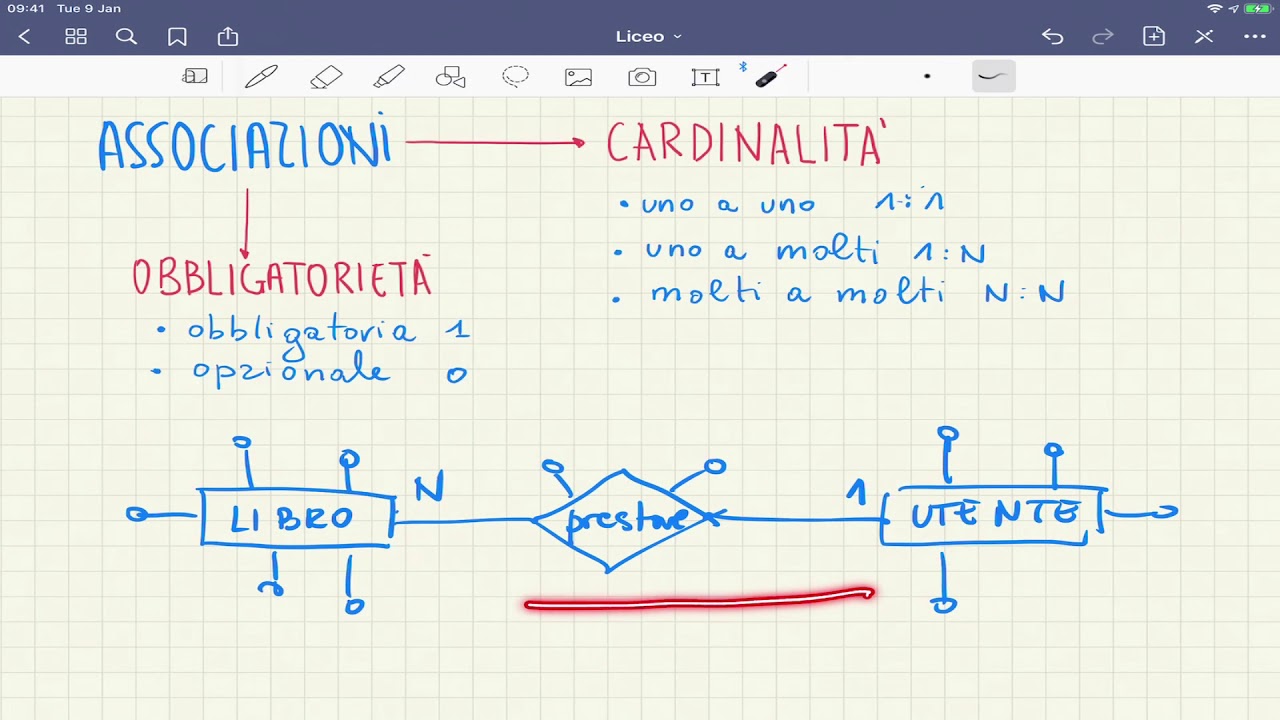 09:41 Tue 9 Jan
Liceo
T
ASSOCIAZIONI
CARDINALITÀ
• uno a uno 1:1
• uno a molti 1:N
• molti a molti N:N
OBBLIGATORIETÀ
• obbligatoria 1
• opzionale 0
N
1
LIBRO
prestare
UTENTE